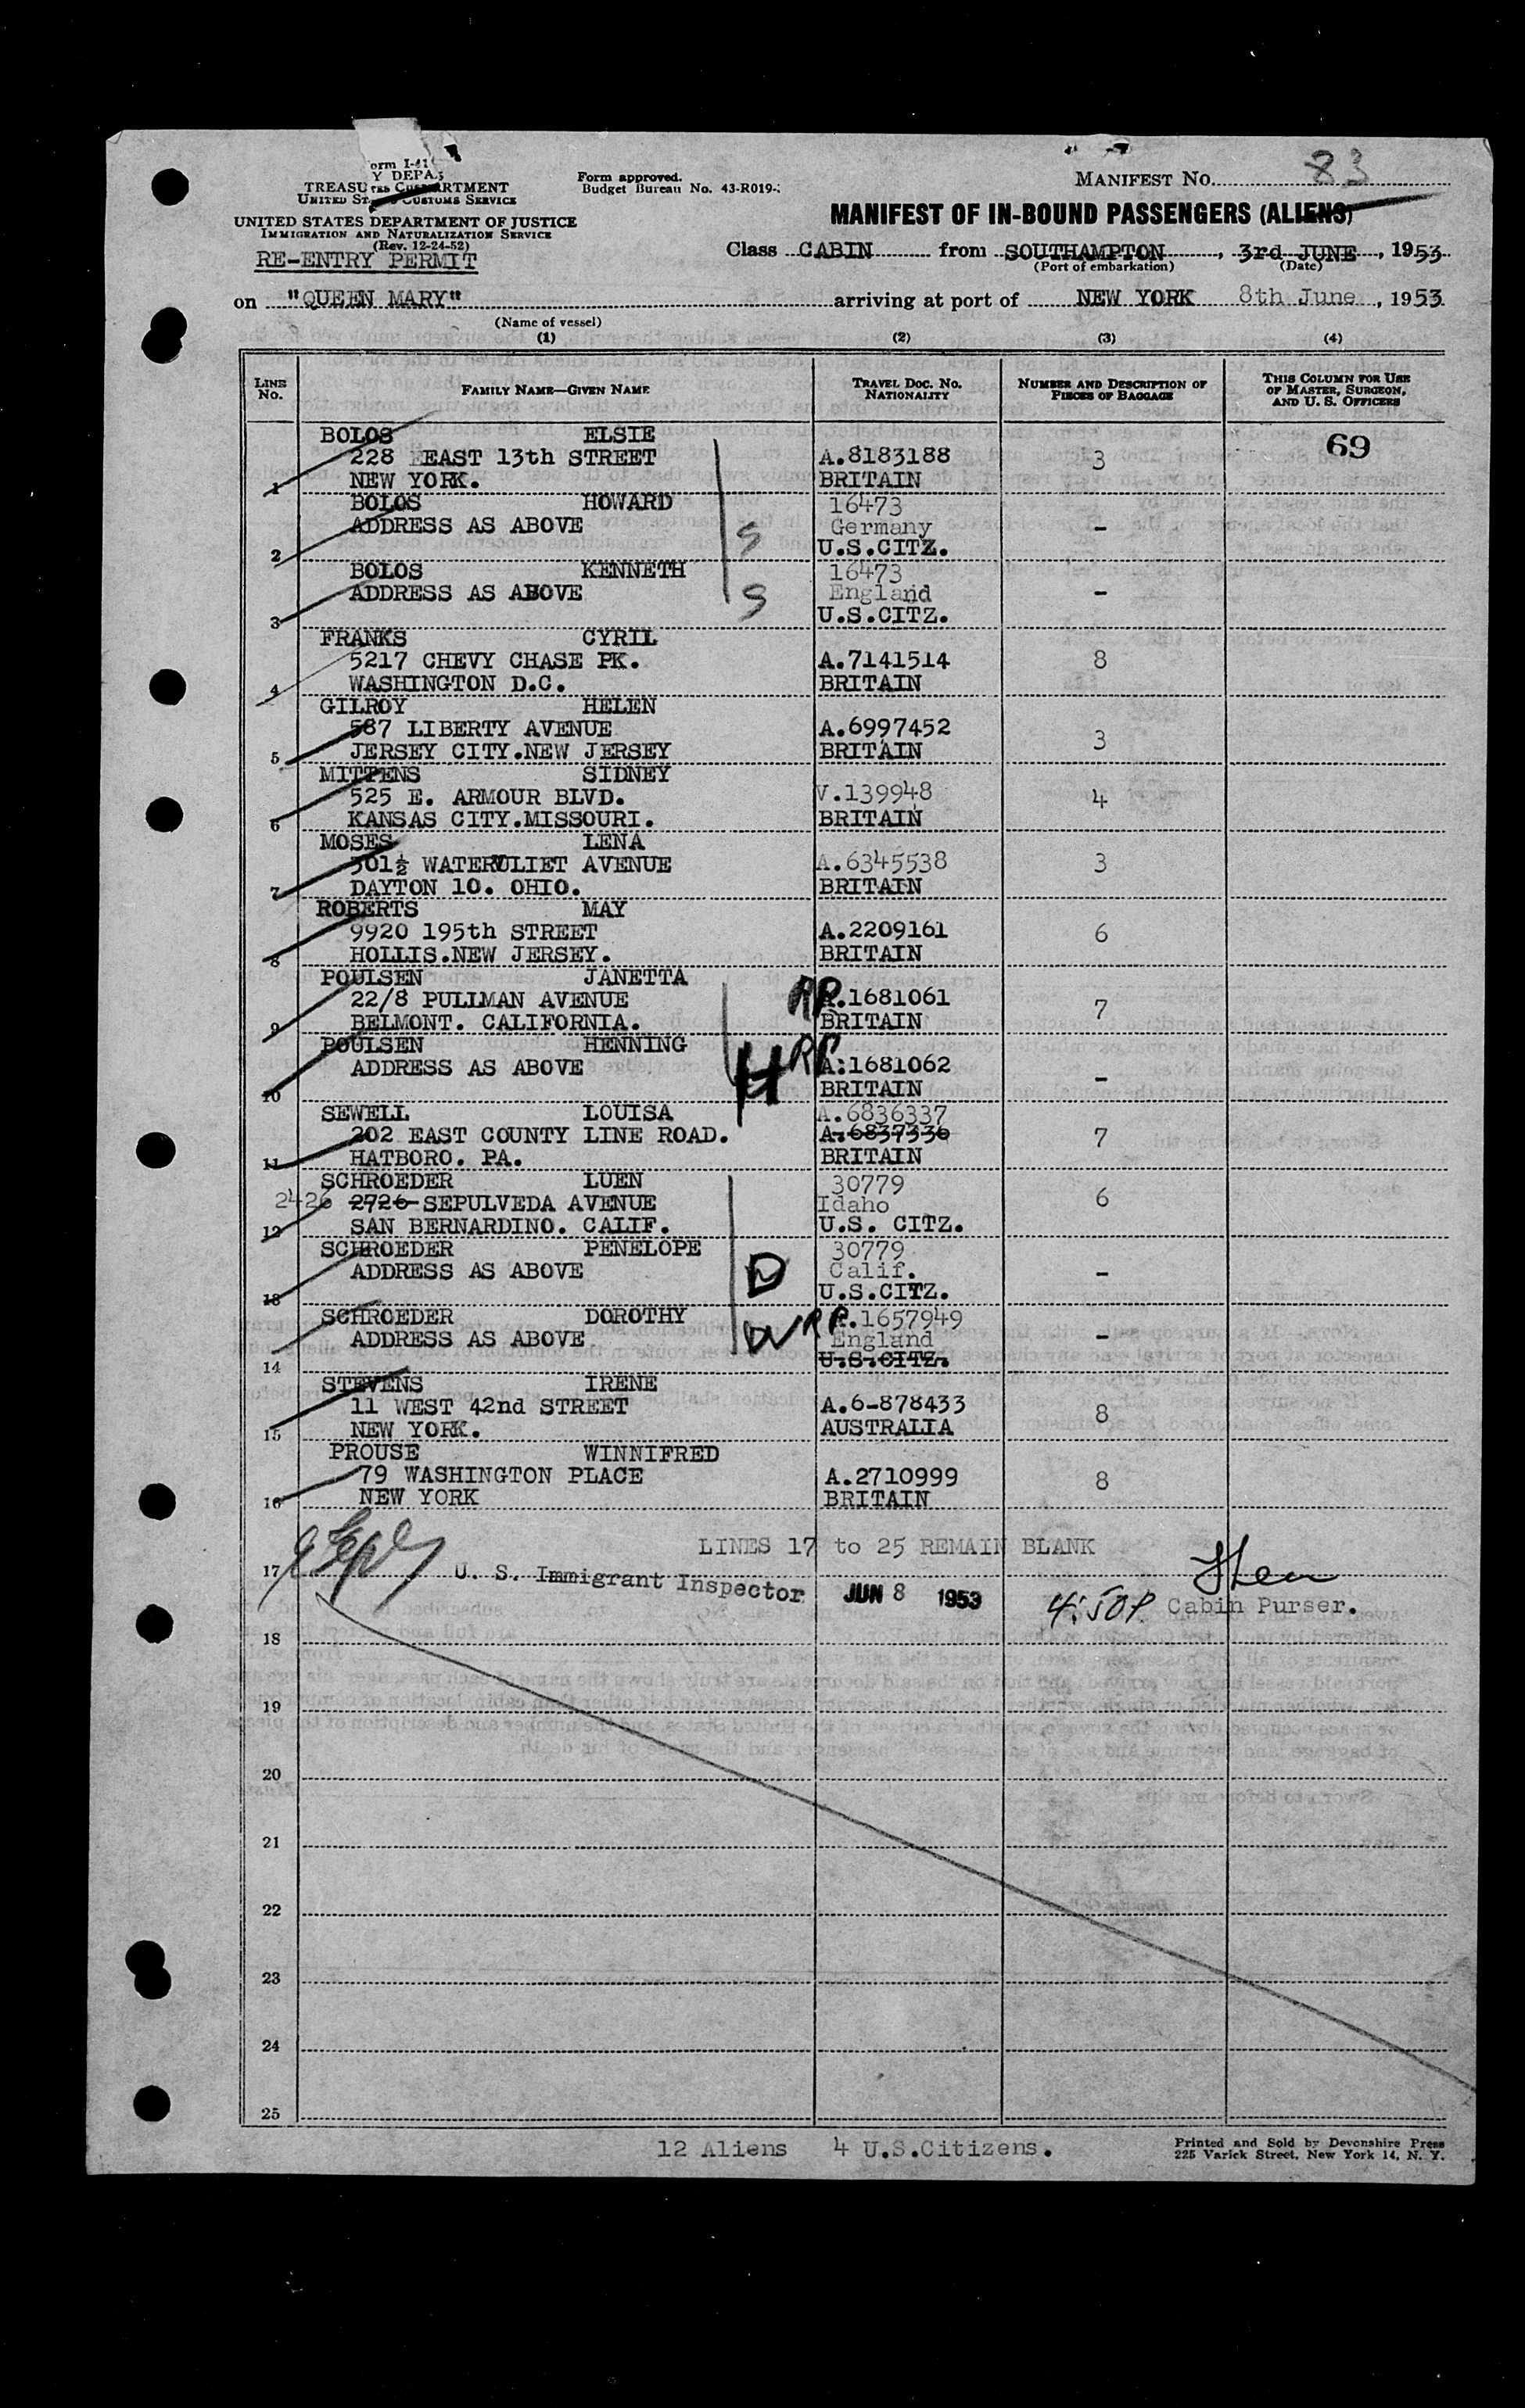 Form approved.
Budget Bureau No. 43-R019-
MANIFEST NO. 83
orm I-41
Y DEPA
TREASU CUS ARTMENT
UNITED ST CUSTOMS SERVICE
UNITED STATES DEPARTMENT OF JUSTICE
IMMIGRATION AND NATURALIZATION SERVICE
(Rev. 12-24-52)
RE-ENTRY PERMIT
MANIFEST OF IN-BOUND PASSENGERS (ALIENS)
Class CABIN from SOUTHAMPTON, 3rd JUNE, 1953
(Port of embarkation) (Date)
on "QUEEN MARY" arriving at port of NEW YORK 8th June, 1953
(Name of vessel)
(1) (2) (3) (4)
LINE NO. FAMILY NAME—GIVEN NAME TRAVEL DOC. NO. NATIONALITY NUMBER AND DESCRIPTION OF PIECES OF BAGGAGE THIS COLUMN FOR USE OF MASTER, SURGEON, AND U. S. OFFICERS
69
BOLOS ELSIE
228 EAST 13th STREET A.8183188 3
1 NEW YORK. BRITAIN
BOLOS HOWARD 16473
ADDRESS AS ABOVE S Germany -
2 U.S.CITZ.
BOLOS KENNETH 16473
ADDRESS AS ABOVE S England -
3 U.S.CITZ.
FRANKS CYRIL
5217 CHEVY CHASE PK. A.7141514 8
4 WASHINGTON D.C. BRITAIN
GILROY HELEN
587 LIBERTY AVENUE A.6997452 3
5 JERSEY CITY.NEW JERSEY BRITAIN
MITTENS SIDNEY
525 E. ARMOUR BLVD. V.139948 4
6 KANSAS CITY.MISSOURI. BRITAIN
MOSES LENA
301½ WATERVLIET AVENUE A.6345538 3
7 DAYTON 10. OHIO. BRITAIN
ROBERTS MAY
9920 195th STREET A.2209161 6
8 HOLLIS.NEW JERSEY. BRITAIN
POULSEN JANETTA
22/8 PULLMAN AVENUE RP.1681061 7
9 BELMONT. CALIFORNIA. BRITAIN
POULSEN HENNING
ADDRESS AS ABOVE H RP A:1681062 -
10 BRITAIN
SEWELL LOUISA A.6836337
202 EAST COUNTY LINE ROAD. A.6837336 7
11 HATBORO. PA. BRITAIN
SCHROEDER LUEN 30779
2426 2726 SEPULVEDA AVENUE Idaho 6
12 SAN BERNARDINO. CALIF. U.S. CITZ.
SCHROEDER PENELOPE 30779
ADDRESS AS ABOVE D Calif. -
13 U.S.CITZ.
SCHROEDER DOROTHY RP.1657949
ADDRESS AS ABOVE England -
14 U.S.CITZ.
STEVENS IRENE
11 WEST 42nd STREET A.6-878433 8
15 NEW YORK. AUSTRALIA
PROUSE WINNIFRED
79 WASHINGTON PLACE A.2710999 8
16 NEW YORK BRITAIN
LINES 17 to 25 REMAIN BLANK
17 U. S. Immigrant Inspector JUN 8 1953 4:50P. Cabin Purser.
18
19
20
21
22
23
24
25
12 Aliens 4 U.S.Citizens.
Printed and Sold by Devonshire Press
225 Varick Street, New York 14, N. Y.